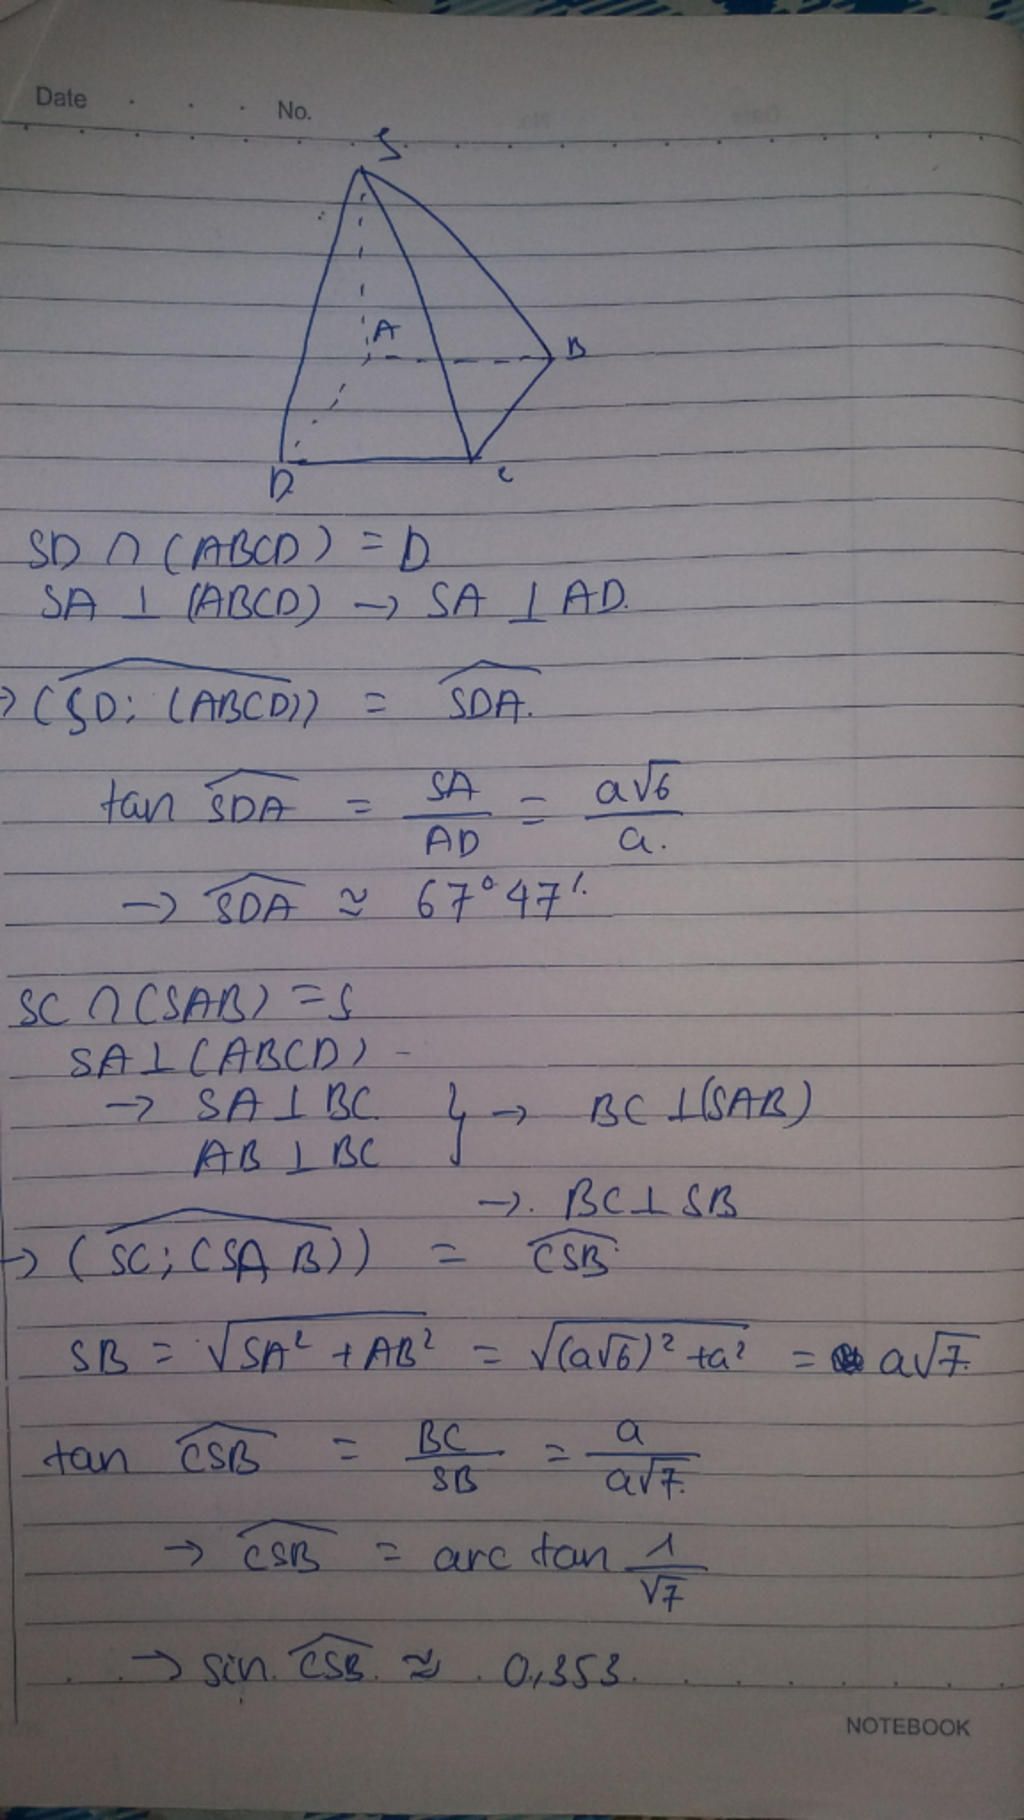 Date
No.
S
A
B
D
C
SD ∩ (ABCD) = D
SA ⊥ (ABCD) → SA ⊥ AD.
→ (SD; (ABCD)) = SDA.
tan SDA = SA/AD = a√6/a.
→ SDA ≈ 67°47'.
SC ∩ (SAB) = S
SA ⊥ (ABCD) -
→ SA ⊥ BC. } → BC ⊥ (SAB)
AB ⊥ BC
→. BC ⊥ SB
→ (SC; (SAB)) = CSB
SB = √(SA² + AB²) = √((a√6)² + a²) = a√7.
tan CSB = BC/SB = a/a√7.
→ CSB = arc tan 1/√7
→ sin. CSB. ≈ 0,353.
NOTEBOOK